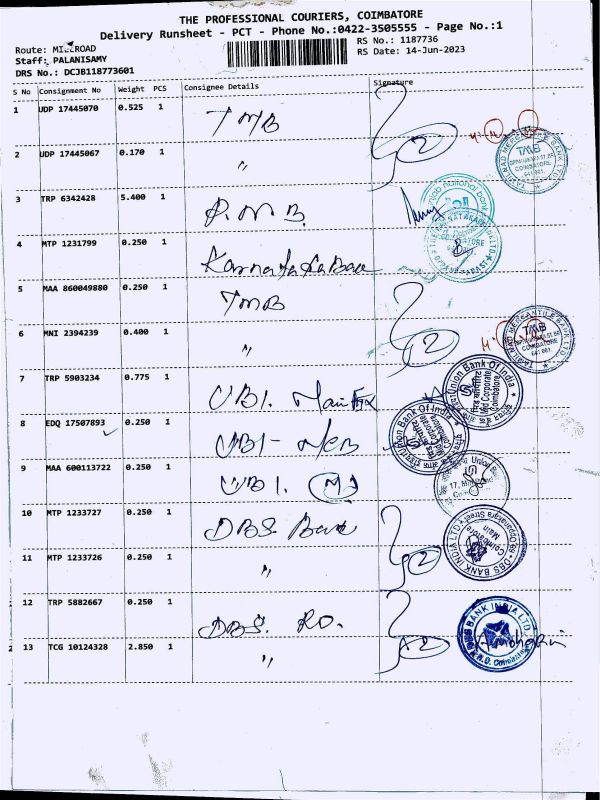 THE PROFESSIONAL COURIERS, COIMBATORE
Delivery Runsheet - PCT - Phone No.:0422-3505555 - Page No.:1
Route: MILLROAD
RS No.: 1187736
Staff: PALANISAMY
RS Date: 14-Jun-2023
DRS No.: DCJB118773601
S No Consignment No Weight PCS Consignee Details Signature
1 UDP 17445070 0.525 1 TMB
2 UDP 17445067 0.170 1 "
TMB
COIMBATORE
641 001.
3 TRP 6342428 5.400 1 P.M.B.
4 MTP 1231799 0.250 1 Karnataka Bank
5 MAA 860049880 0.250 1 TMB
6 MNI 2394239 0.400 1 "
TMB
COIMBATORE
641 001.
7 TRP 5903234 0.775 1 UBI. Main
Union Bank Of India
Mid Corporate
Coimbatore
8 EDQ 17507893 0.250 1 UBI -
Union Bank Of India
9 MAA 600113722 0.250 1 UBI.
10 MTP 1233727 0.250 1 DBS Bank
DBS BANK INDIA LTD
Coimbatore
Main
11 MTP 1233726 0.250 1 "
12 TRP 5882667 0.250 1 DBS. RO.
DBS BANK INDIA LTD
13 TCG 10124328 2.850 1 "